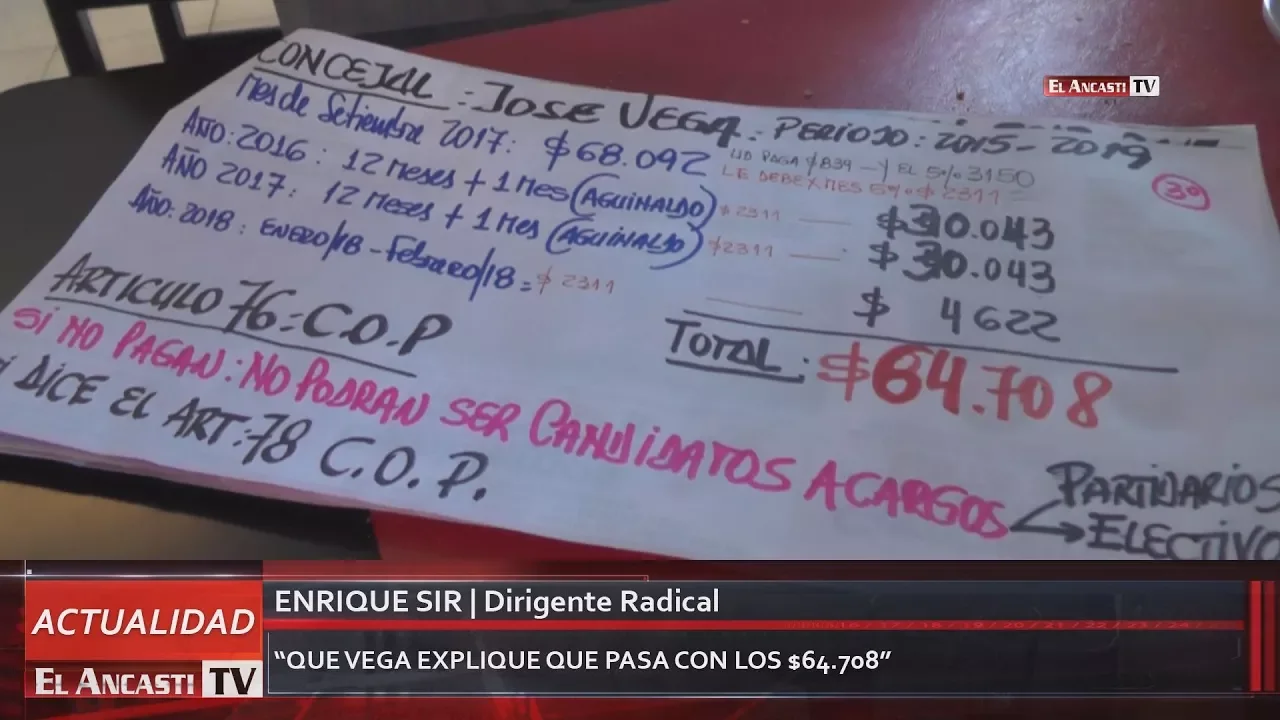 EL ANCASTI TV
CONCEJAL : JOSE VEGA. PERIODO: 2015-2019
Mes de Setiembre 2017: $68.092 UD PAGA $839 - Y EL 5% 3150
LE DEBE X MES 5% $ 2311 =
3º
AÑO: 2016 : 12 MESES + 1 MES (AGUINALDO) $2311 $30.043
AÑO 2017: 12 MESES + 1 MES (AGUINALDO) $2311 $30.043
AÑO: 2018 : ENERO/18 - Febrero/18 = $ 2311 $ 4622
TOTAL: $64.708
ARTICULO 76=C.O.P
SI NO PAGAN: NO PODRAN SER CANDIDATOS A CARGOS PARTIDARIOS
ELECTIVO
DICE EL ART: 78 C.O.P.
ACTUALIDAD
EL ANCASTI TV
ENRIQUE SIR | Dirigente Radical
“QUE VEGA EXPLIQUE QUE PASA CON LOS $64.708”